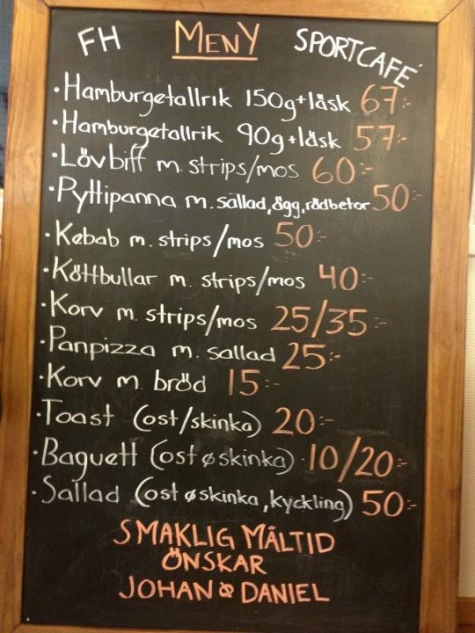 FH MENY SPORTCAFÉ
·Hamburgetallrik 150g+läsk 67:-
·Hamburgetallrik 90g+läsk 57:-
·Lövbiff m. strips/mos 60:-
·Pyttipanna m. sallad, ägg, rödbetor 50:-
·Kebab m. strips/mos 50:-
·Köttbullar m. strips/mos 40:-
·Korv m. strips/mos 25/35:-
·Panpizza m. sallad 25:-
·Korv m. bröd 15:-
·Toast (ost/skinka) 20:-
·Baguett (ost & skinka) 10/20:-
·Sallad (ost & skinka, kyckling) 50:-
SMAKLIG MÅLTID
ÖNSKAR
JOHAN & DANIEL